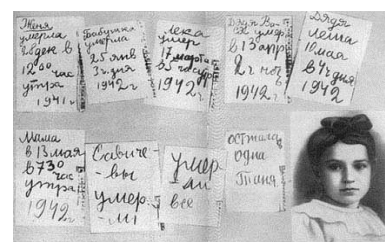 Женя
умерла
28 дек в
12 00 час
утра
1941 г
Бабушка
умерла
25 янв
3 ч. дня
1942 г
Лека
умер
17 марта
в 5 час утр
1942 г
Дядя Вася
умер
в 13 апр
2 ч ноч
1942 г
Дядя
Леша
10 мая
в 4 ч дня
1942
Мама
в 13 мая
в 7 30
час
утра
1942 г
Савиче-
-вы
умер-
-ли
умер
-ли
все
осталась
одна
Таня